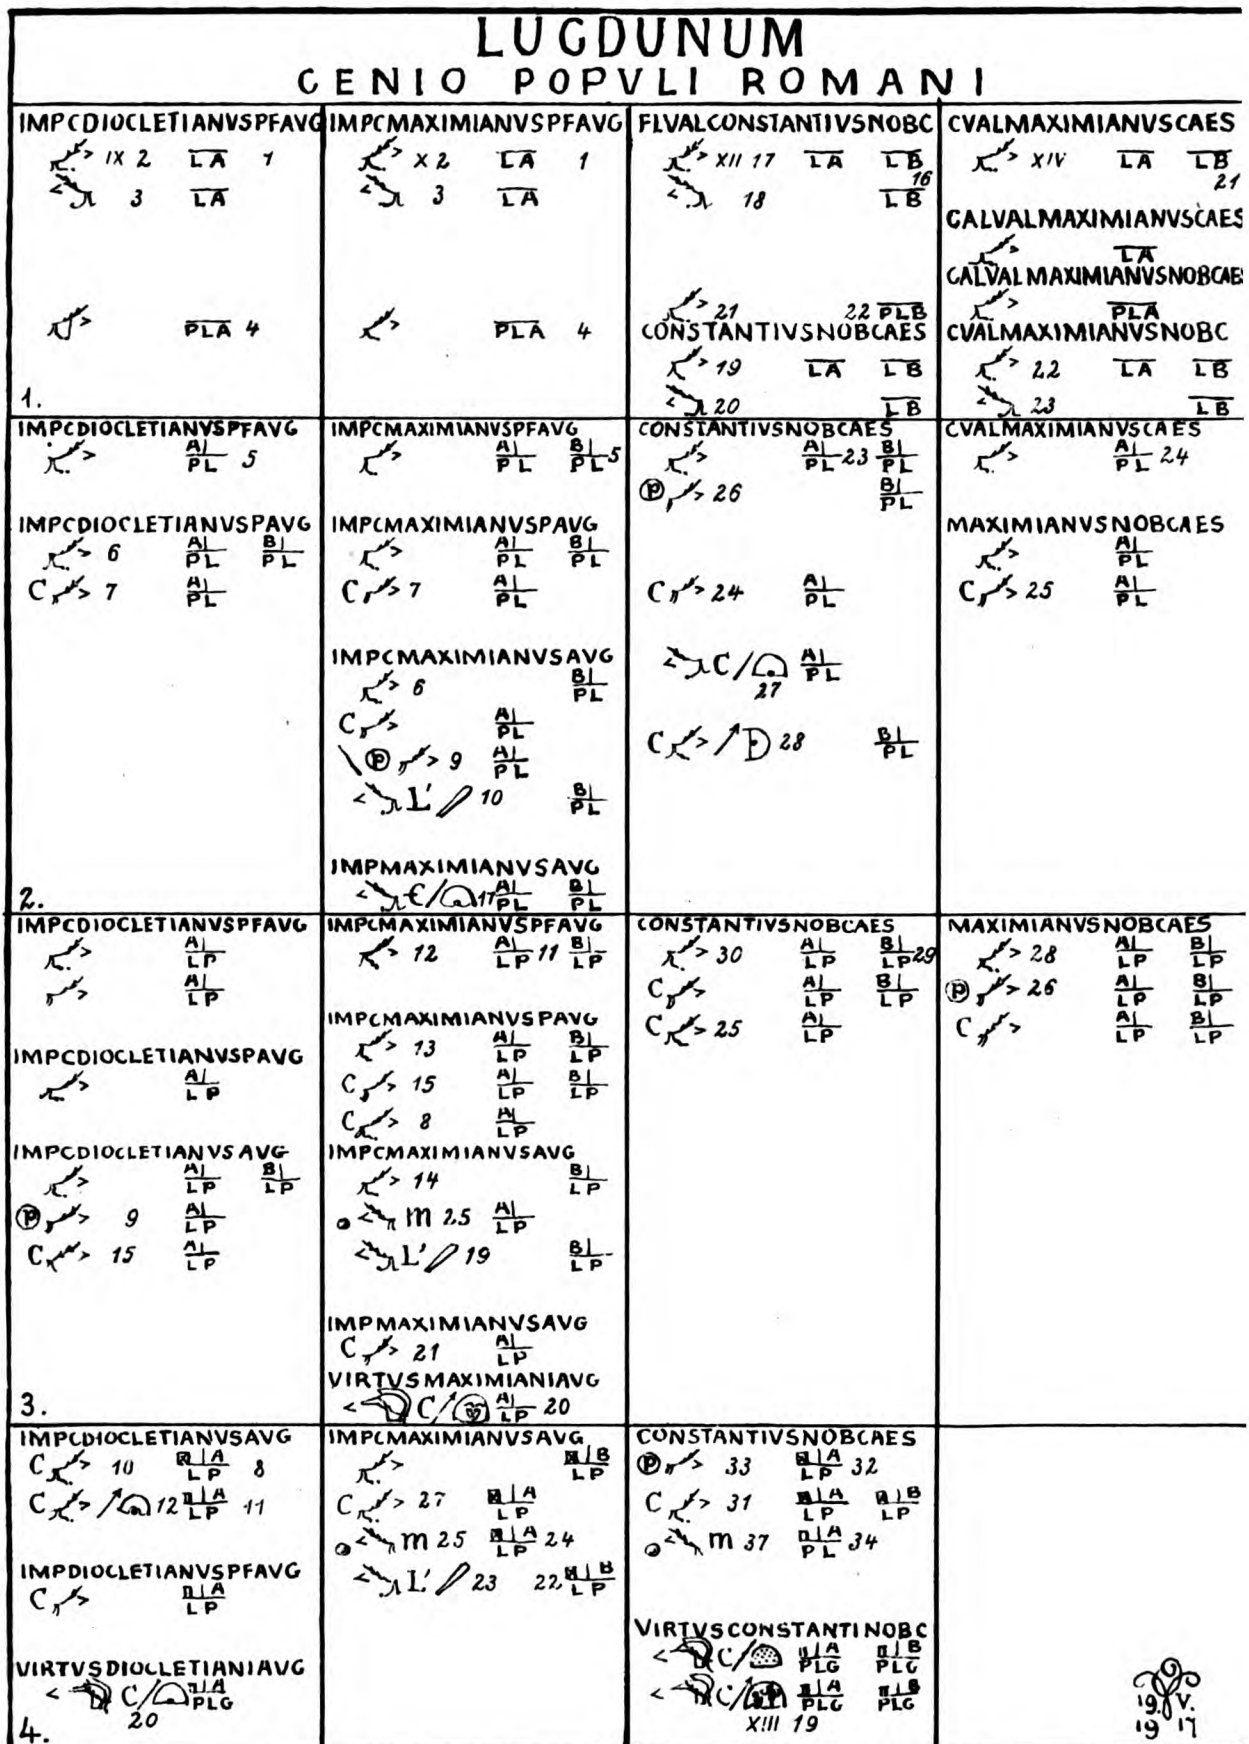 LUGDUNUM
GENIO POPVLI ROMANI
IMPCDIOCLETIANVSPFAVG
IX 2 LA 1
3 LA
PLA 4
1.
IMPCMAXIMIANVSPFAVG
X 2 LA 1
3 LA
PLA 4
FLVALCONSTANTIVSNOBC
XII 17 LA LB
16
18 LB
21 22 PLB
CONSTANTIVSNOBCAES
19 LA LB
20 LB
CVALMAXIMIANVSCAES
XIV LA LB
21
GALVALMAXIMIANVSCAES
LA
GALVALMAXIMIANVSNOBCAES
PLA
CVALMAXIMIANVSNOBC
22 LA LB
23 LB
IMPCDIOCLETIANVSPFAVG
A
PL 5
IMPCDIOCLETIANVSPAVG
6 A B
PL PL
C 7 A
PL
2.
IMPCMAXIMIANVSPFAVG
A B
PL PL 5
IMPCMAXIMIANVSPAVG
A B
PL PL
C 7 A
PL
IMPCMAXIMIANVSAVG
6 B
PL
C A
PL
P 9 A
PL
L' 10 B
PL
IMPMAXIMIANVSAVG
C 17 A B
PL PL
CONSTANTIVSNOBCAES
A B
PL 23 PL
P 26 B
PL
C 24 A
PL
C A
PL
27
C 28 B
PL
CVALMAXIMIANVSCAES
A
PL 24
MAXIMIANVSNOBCAES
A
PL
C 25 A
PL
IMPCDIOCLETIANVSPFAVG
A
LP
A
LP
IMPCDIOCLETIANVSPAVG
A
LP
IMPCDIOCLETIANVSAVG
A B
LP LP
P 9 A
LP
C 15 A
LP
3.
IMPCMAXIMIANVSPFAVG
12 A B
LP 11 LP
IMPCMAXIMIANVSPAVG
13 A B
LP LP
C 15 A B
LP LP
C 8 A
LP
IMPCMAXIMIANVSAVG
14 B
LP
m 25 A
LP
L' 19 B
LP
IMPMAXIMIANVSAVG
C 21 A
LP
VIRTVSMAXIMIANIAVG
C A
LP 20
CONSTANTIVSNOBCAES
30 A B
LP LP 29
C A B
LP LP
C 25 A
LP
MAXIMIANVSNOBCAES
28 A B
LP LP
P 26 A B
LP LP
C A B
LP LP
IMPCDIOCLETIANVSAVG
C 10 A
LP 8
C 12 A
LP 11
IMPDIOCLETIANVSPFAVG
C A
LP
VIRTVSDIOCLETIANIAVG
C A
PLG
20
4.
IMPCMAXIMIANVSAVG
B
LP
C 27 A
LP
m 25 A
LP 24
L' 23 22 B
LP
CONSTANTIVSNOBCAES
P 33 A
LP 32
C 31 A B
LP LP
m 37 A
PL 34
VIRTVSCONSTANTINOBC
C A B
PLG PLG
C A B
PLG PLG
XIII 19
19. V.
19 17